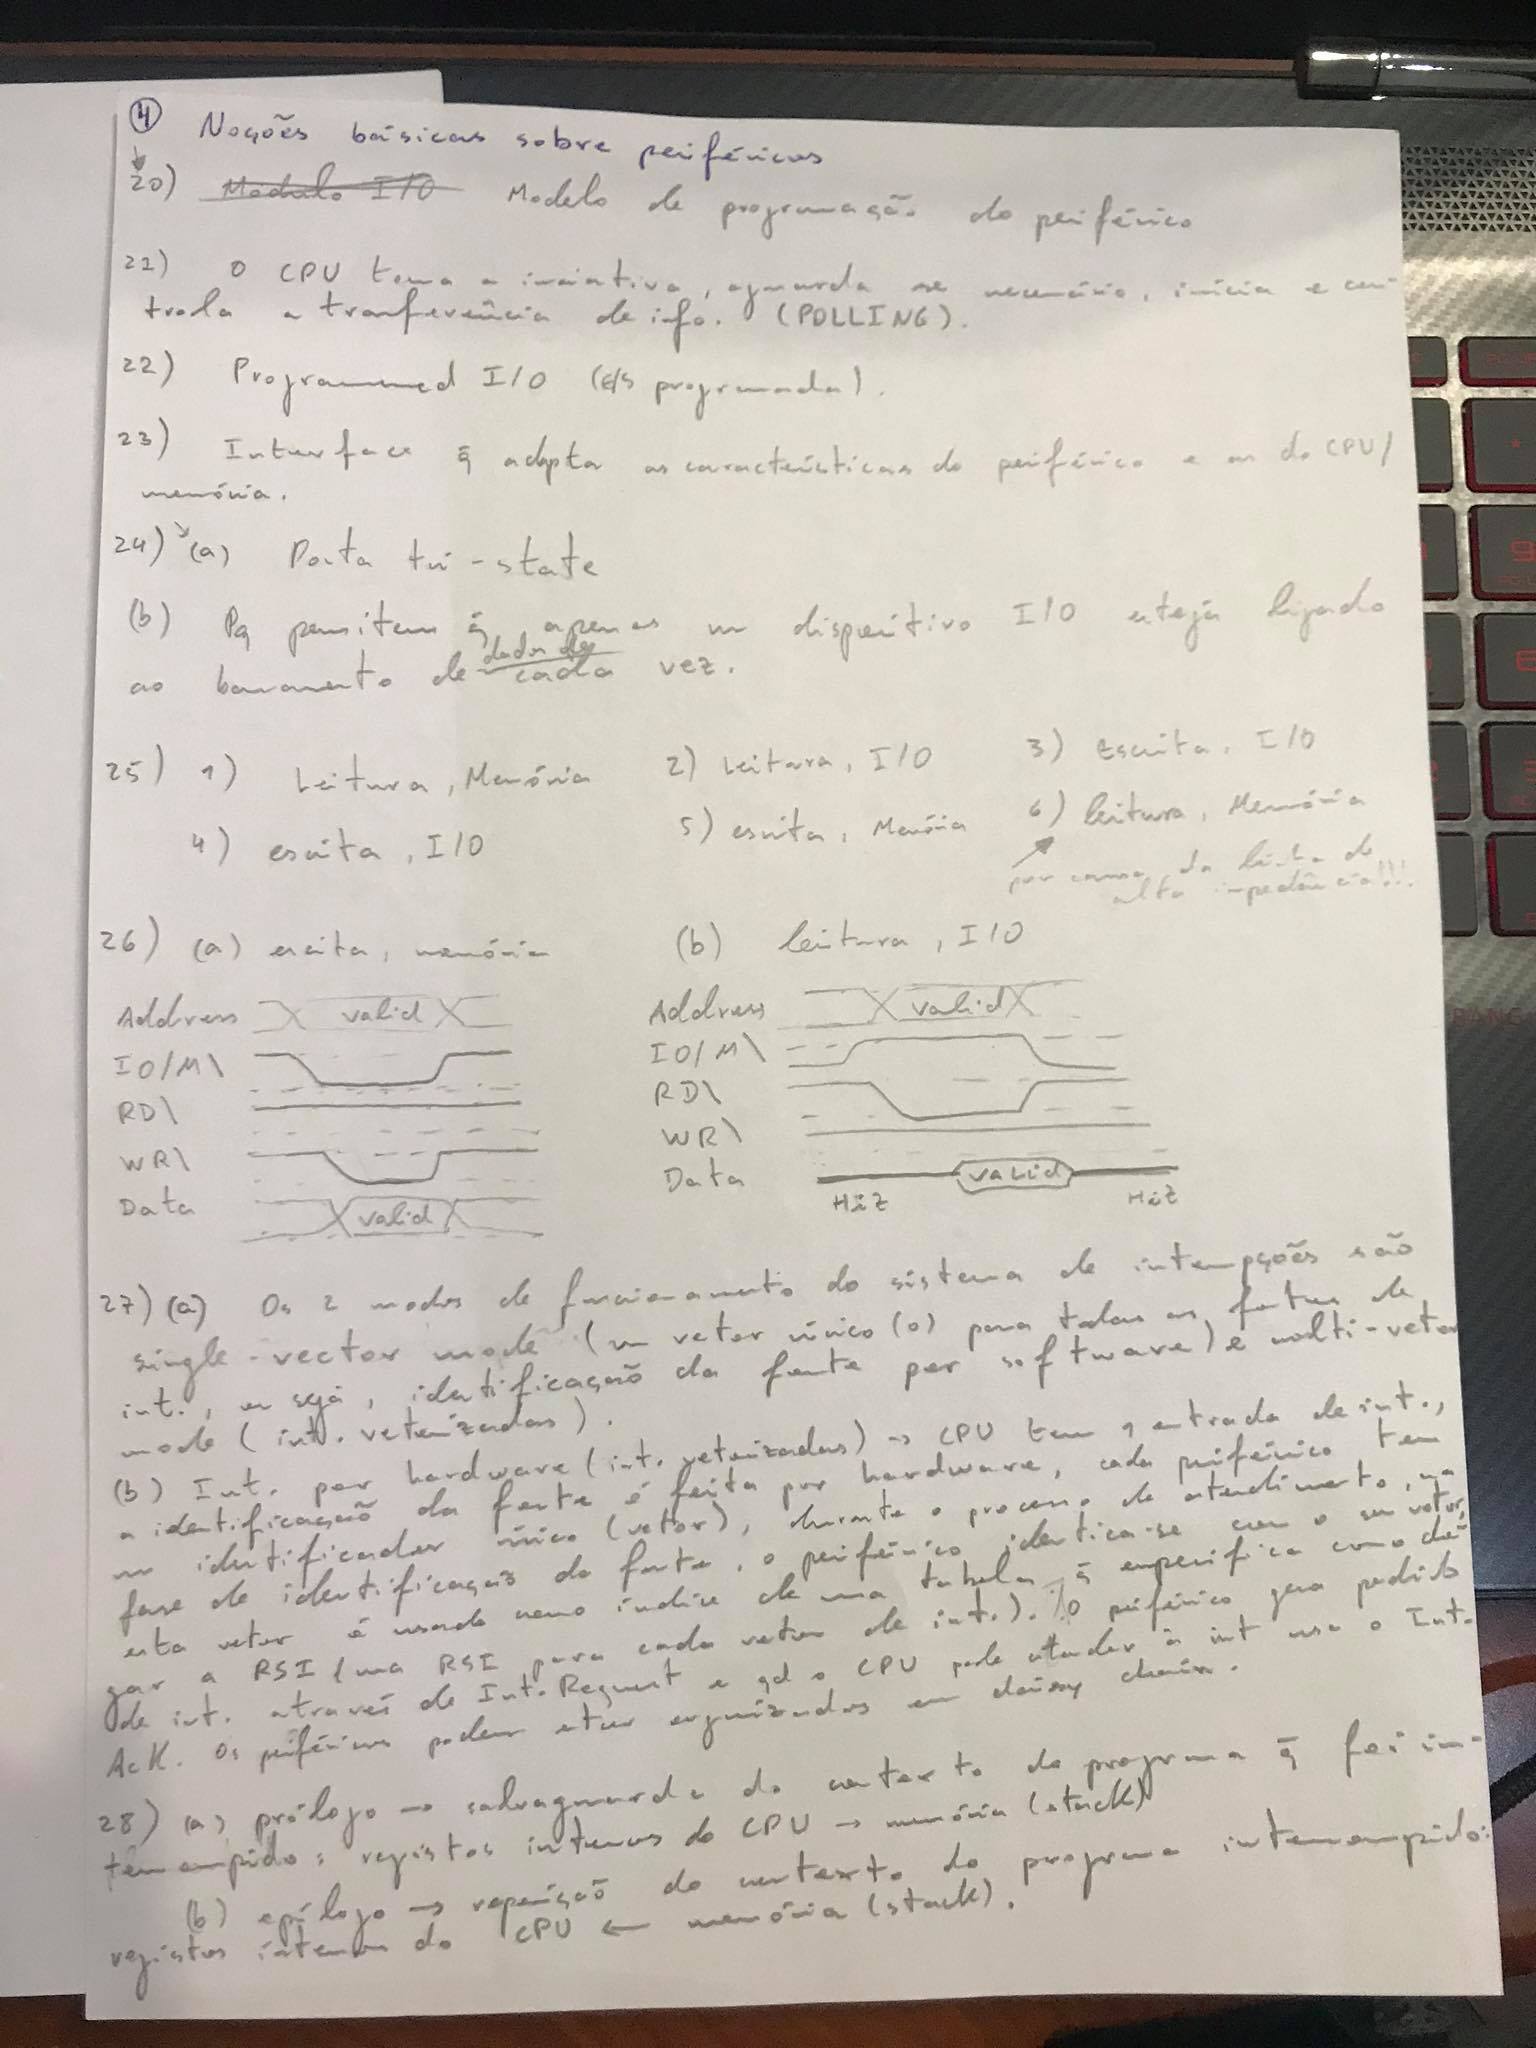 4 Noções básicas sobre periféricos
20) Modulo I/O Modelo de programação do periférico
21) O CPU toma a iniciativa, aguarda se necessário, inicia e con-
trola a tranferência de info. (POLLING).
22) Programmed I/O (E/S programada).
23) Interface q̃ adapta as características do periférico e as do CPU/
memória.
24) (a) Porta tri-state
(b) Pq permitem q̃ apenas um dispositivo I/O esteja ligado
ao barramento de dados de cada vez.
25) 1) Leitura, Memória 2) Leitura, I/O 3) Escrita, I/O
4) escrita, I/O 5) escrita, Memória 6) leitura, Memória
por causa da linha de
alta impedância!!!
26) (a) escrita, memória (b) leitura, I/O
Address valid Address valid
IO/M\ IO/M\
RD\ RD\
WR\ WR\
Data valid Data valid
HiZ HiZ
27) (a) Os 2 modos de funcionamento do sistema de interrupções são
single-vector mode (um vetor único (0) para todas as fontes de
int., ou seja, identificação da fonte por software) e multi-vetor
mode (int. vetorizadas).
(b) Int. por hardware (int. vetorizadas) → CPU tem 1 entrada de int.,
a identificação da fonte é feita por hardware, cada periférico tem
um identificador único (vetor), durante o processo de atendimento, na
fase de identificação da fonte, o periférico identica-se com o seu vetor,
esta vetor é usado como índice de uma tabela q̃ especifica como de-
gar a RSI (uma RSI para cada vetor de int.). O periférico gera pedido
de int. através de Int. Request e qd o CPU pode atender à int usa o Int.
Ack. Os periféricos podem estar organizados em daisy chain.
28) (a) prólogo → salvaguarda do contexto do programa q̃ foi in-
terrompido: registos internos do CPU → memória (stack)
(b) epílogo → reposição do contexto do programa interrompido:
registos internos do CPU ← memória (stack).